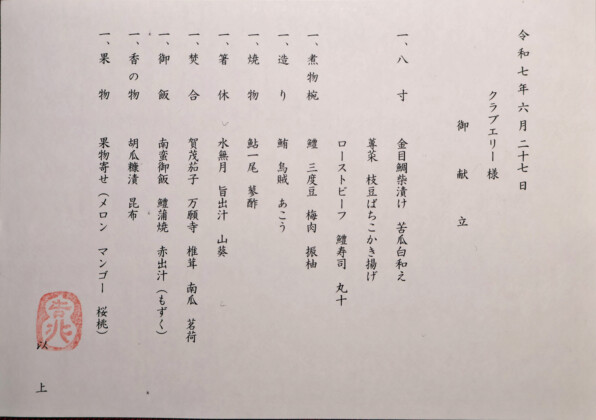 令和七年六月二十七日
クラブエリー様
御献立
一、八寸 金目鯛柴漬け 苦瓜白和え
蓴菜 枝豆ばちこかき揚げ
ローストビーフ 鱧寿司 丸十
一、煮物椀 鱧 三度豆 梅肉 振柚
一、造り 鮪 烏賊 あこう
一、焼物 鮎一尾 蓼酢
一、箸休 水無月 旨出汁 山葵
一、焚合 賀茂茄子 万願寺 椎茸 南瓜 茗荷
一、御飯 南蛮御飯 鱧蒲焼 赤出汁(もずく)
一、香の物 胡瓜糠漬 昆布
一、果物 果物寄せ(メロン マンゴー 桜桃)
吉兆
以上